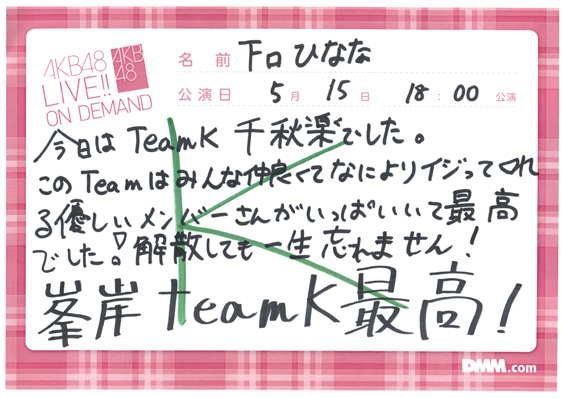 AKB48
LIVE!!
ON DEMAND
AKB
48
名前 下口ひなな
公演日 5月 15日 18:00 公演
今日は TeamK 千秋楽でした。
このTeamはみんな仲良くてなによりイジってくれ
る優しいメンバーさんがいっぱいいて最高
でした。!解散しても一生忘れません!
峯岸teamK最高!
DMM.com